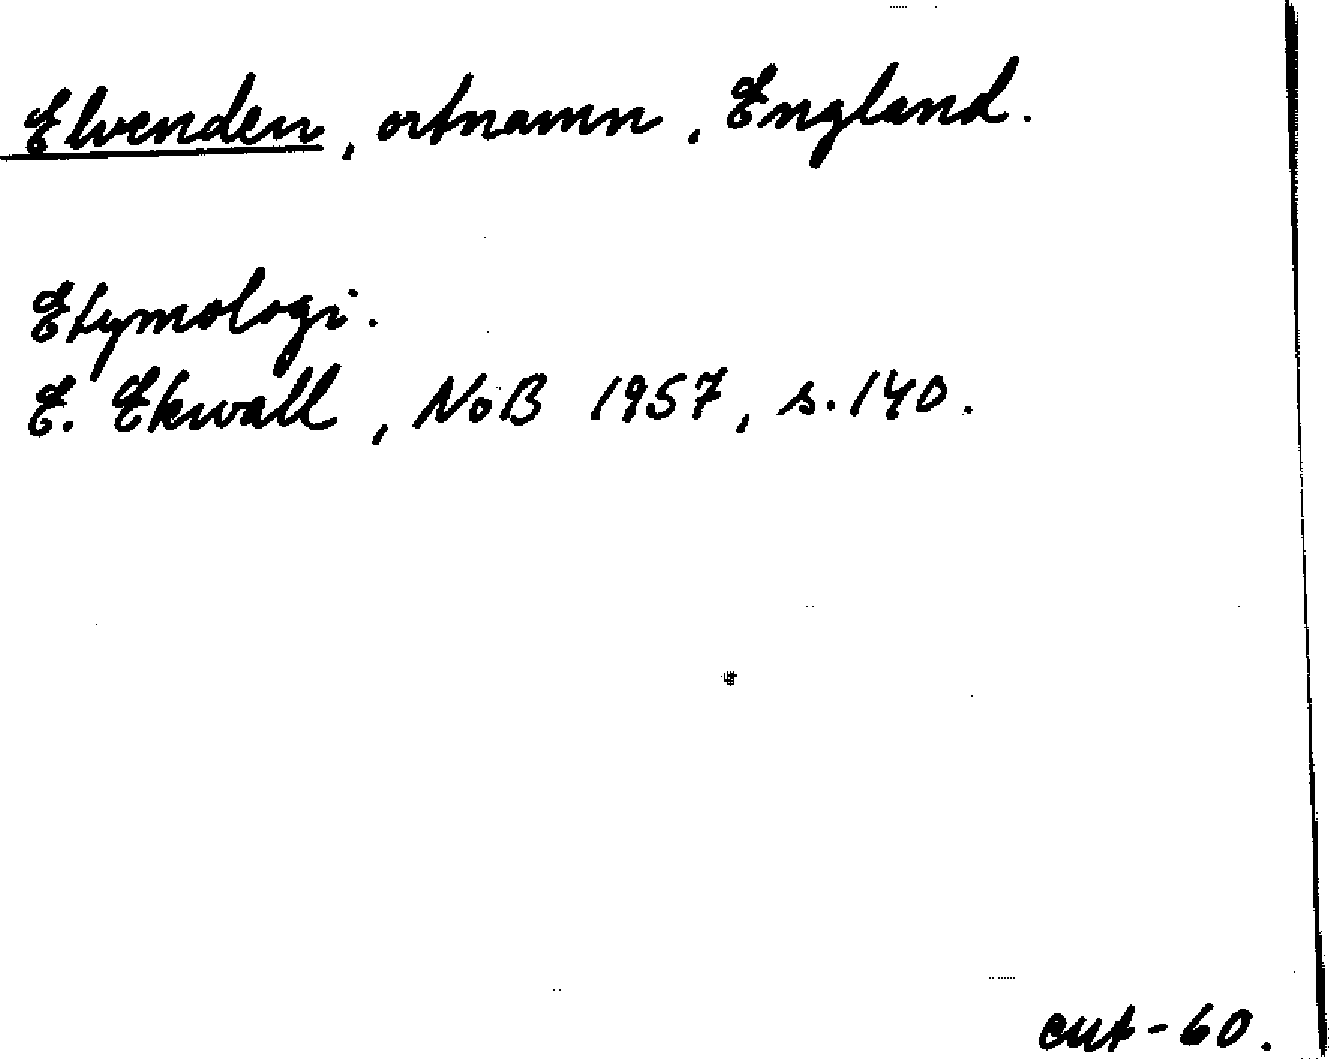 Elvenden, ortnamn, England.
Etymologi.
E. Ekwall, NoB 1957, s. 140.
-60.